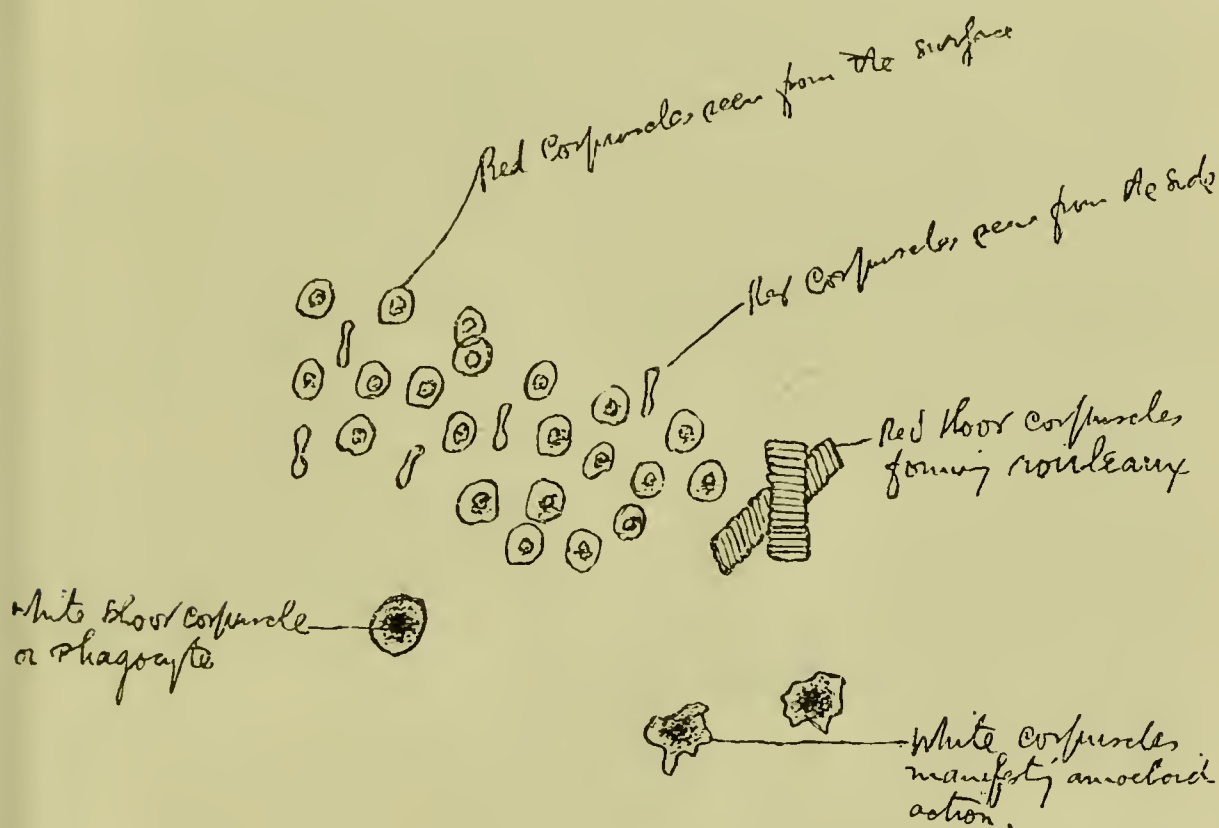 Red Corpuscles seen from the surface
Red Corpuscles seen from the side
Red blood corpuscles
forming rouleaux
White blood corpuscle
or Phagocyte
White corpuscles
manifestg amoeboid
action.